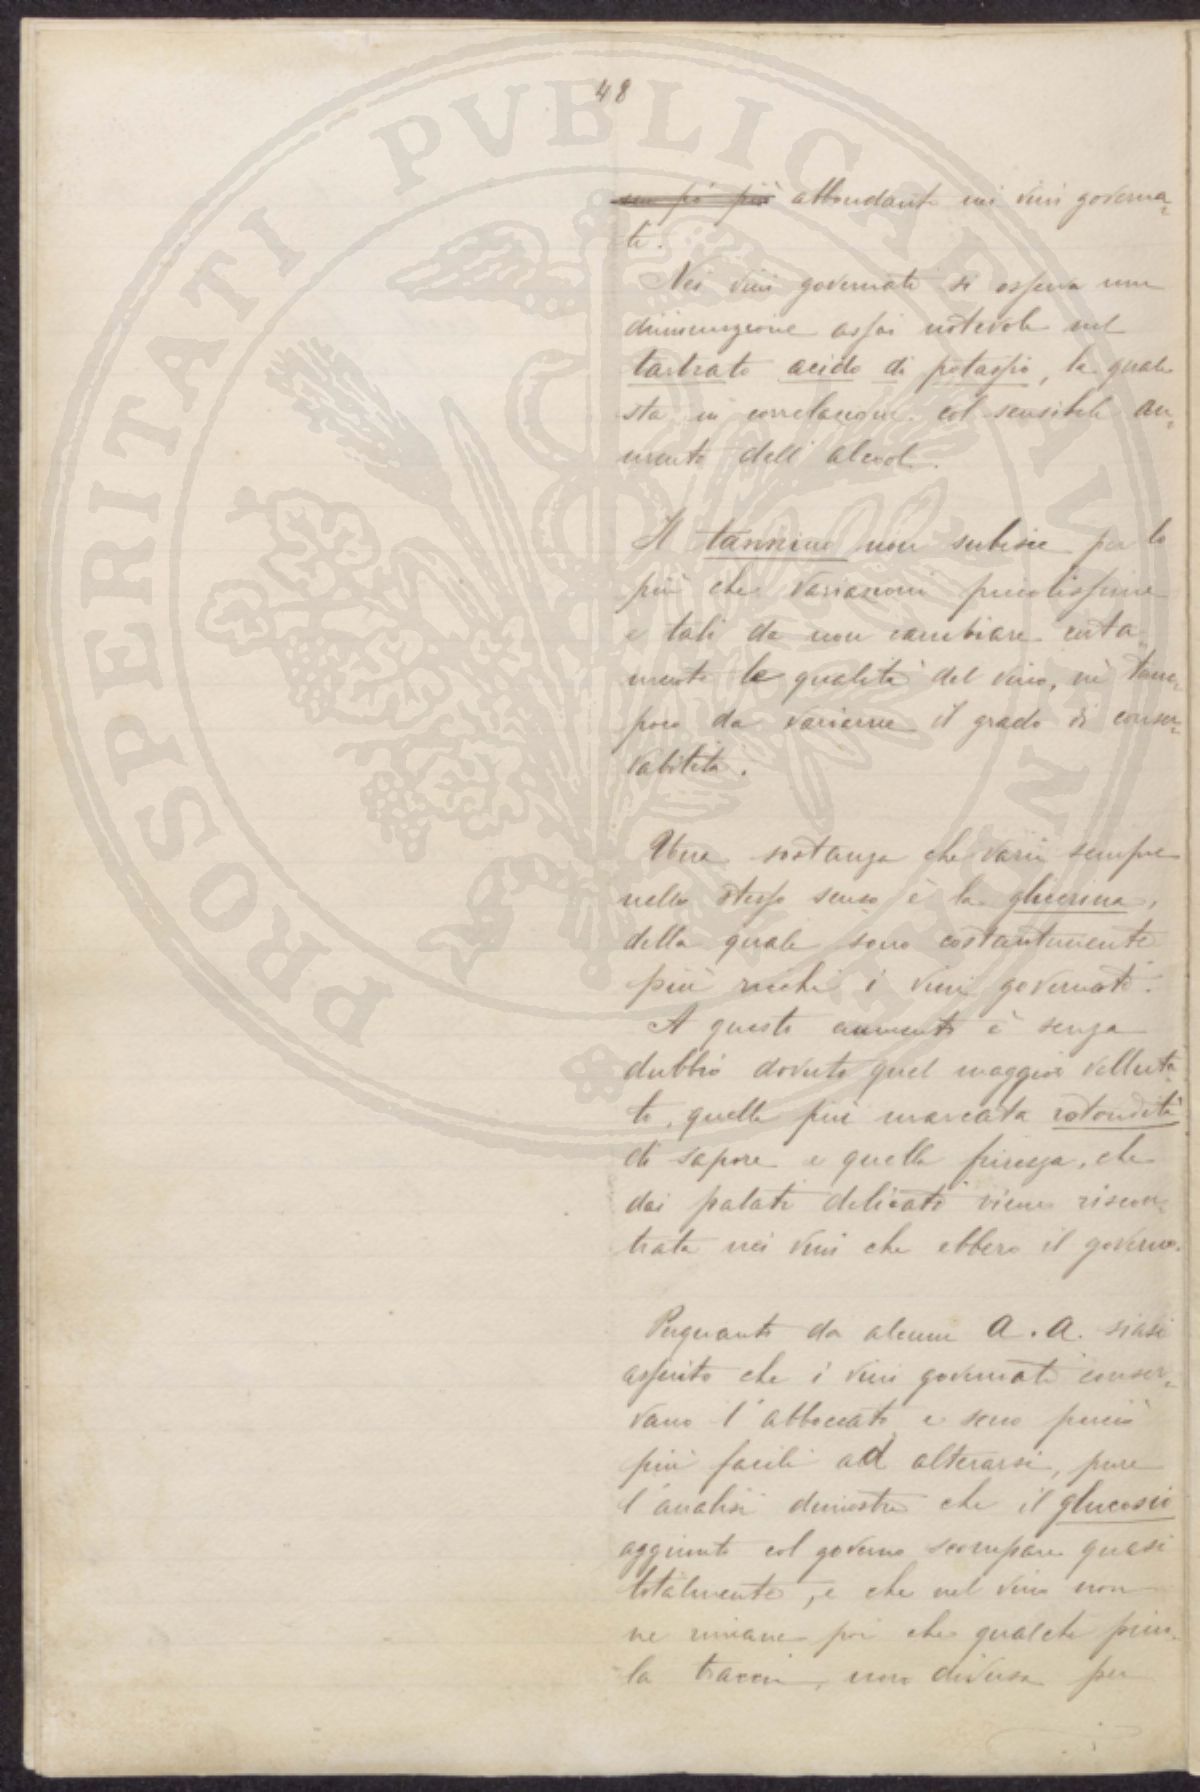 48
un pò più abbondante nei vini governa=
ti.
Nei vini governati si osserva una
diminuzione assai notevole nel
tartrato acido di potassio, la quale
sta in correlazione col sensibile au=
mento dell'alcool.
Il tannino non subisce per lo
più che variazioni piccolissime
e tali da non cambiare certa=
mente le qualità del vino, nè tam=
poco da variarne il grado di conser=
vabilità.
Una sostanza che varia sempre
nello stesso senso è la glicerina,
della quale sono costantemente
più ricchi i vini governati.
A questo aumento è senza
dubbio dovuto quel maggior velluta=
to, quella più marcata rotondità
di sapore e quella finezza, che
dai palati delicati viene riscon=
trata nei vini che ebbero il governo.
Perquanto da alcuni A. A. siasi
asserito che i vini governati conser=
vano l'abboccato e sono perciò
più facili ad alterarsi, pure
l'analisi dimostra che il glucosio
aggiunto col governo scompare quasi
totalmente, e che nel vino non
ne rimane poi che qualche picco=
la traccia, non diversa per
PROSPERITATI PVBLICAE